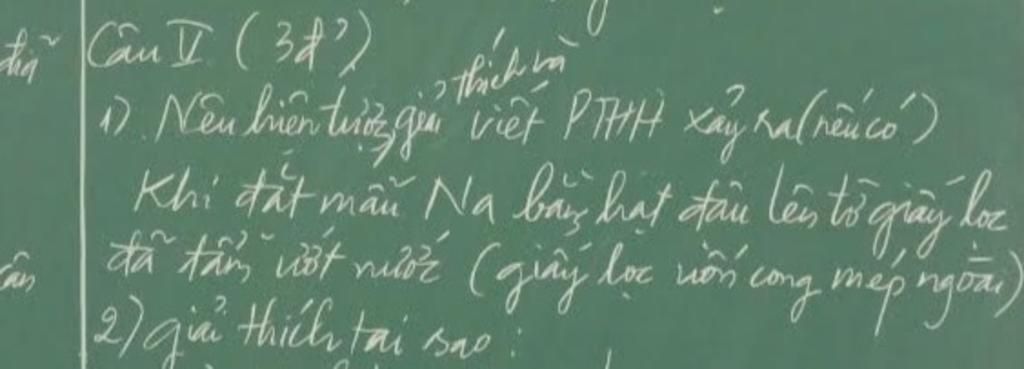 đĩa
Câu V (3đ)
1). Nêu hiện tượng, giải thích và viết PTHH xảy ra (nếu có)
Khi đặt mẫu Na bằng hạt đậu lên tờ giấy lọc
đã tẩm ướt nước (giấy lọc uốn cong mép ngoài)
cân
2) giải thích tại sao: